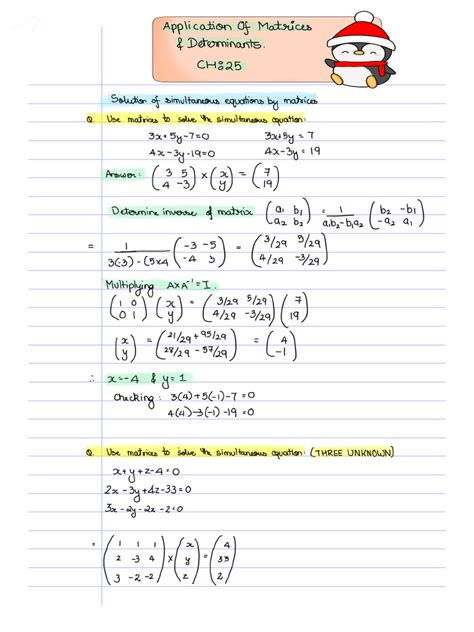 Application Of Matrices
& Determinants.
CH:25
Solution of simultaneous equations by matrices
Q. Use matrices to solve the simultaneous equation:
3x+5y-7=0 3x+5y=7
4x-3y-19=0 4x-3y=19
Answer: (3 5 / 4 -3) × (x / y) = (7 / 19)
Determine inverse of matrix (a₁ b₁ / a₂ b₂) = 1/(a₁b₂-b₁a₂) (b₂ -b₁ / -a₂ a₁)
= 1/(3(-3)-(5×4) (-3 -5 / -4 3) = (3/29 5/29 / 4/29 -3/29)
Multiplying A×A⁻¹=I.
(1 0 / 0 1) (x / y) = (3/29 5/29 / 4/29 -3/29) (7 / 19)
(x / y) = (21/29 + 95/29 / 28/29 - 57/29) = (4 / -1)
∴ x=-4 & y=1
Checking: 3(4)+5(-1)-7=0
4(4)-3(-1)-19=0
Q. Use matrices to solve the simultaneous equation: (THREE UNKNOWN)
x+y+z-4=0
2x-3y+4z-33=0
3x-2y-2z-2=0
= (1 1 1 / 2 -3 4 / 3 -2 -2) × (x / y / z) = (4 / 33 / 2)